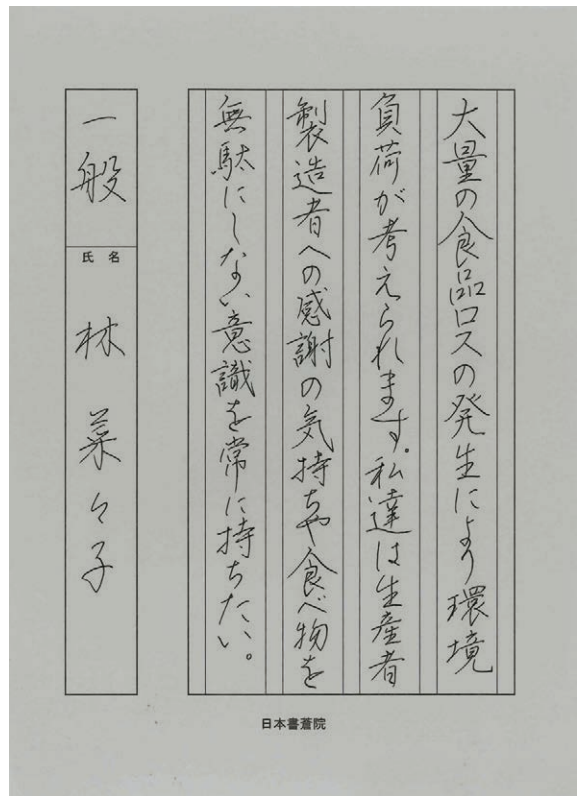 大量の食品ロスの発生により環境
負荷が考えられます。私達は生産者
製造者への感謝の気持ちや食べ物を
無駄にしない意識を常に持ちたい。
一般
氏名
林菜々子
日本書蒼院